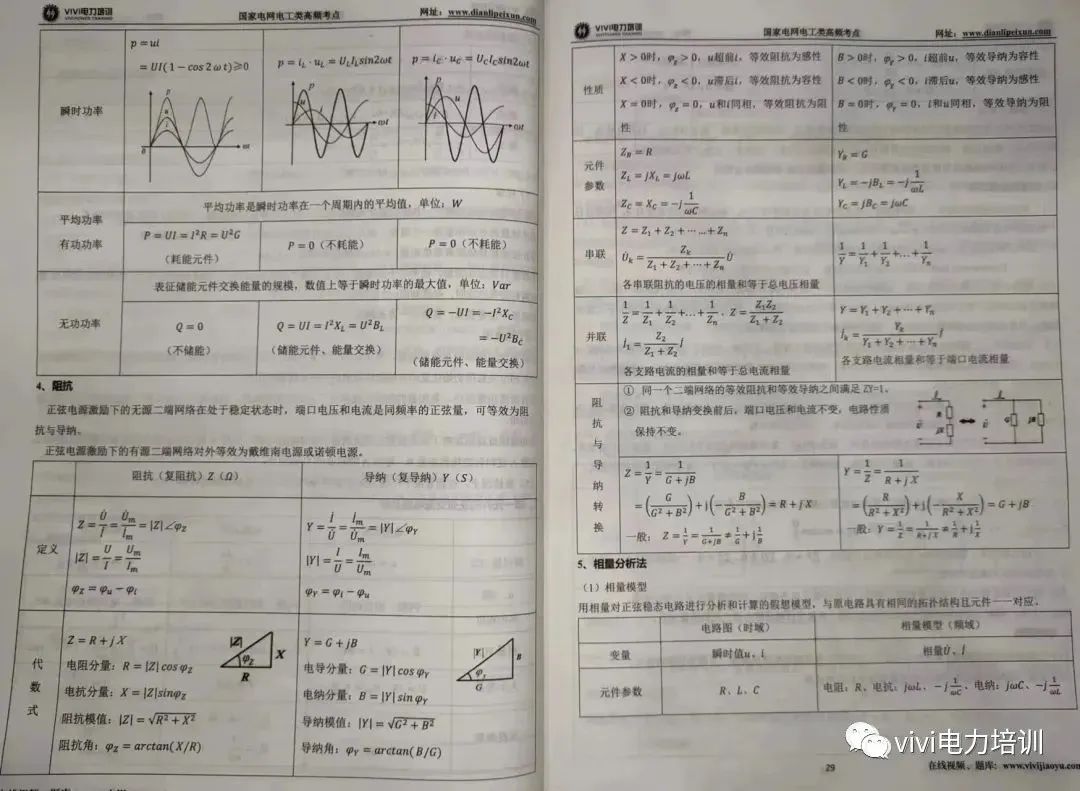 VIVI电力培训
国家电网电工类高频考点
网址：www.dianlipeixun.com
瞬时功率
p = ui
= UI(1 − cos2ωt)≥0
p = i_L · u_L = U_L I_L sin2ωt
p = i_C · u_C = U_C I_C sin2ωt
平均功率
有功功率
平均功率是瞬时功率在一个周期内的平均值，单位：W
P = UI = I²R = U²G
（耗能元件）
P = 0（不耗能）
P = 0（不耗能）
无功功率
表征储能元件交换能量的规模，数值上等于瞬时功率的最大值，单位：Var
Q = 0
（不储能）
Q = UI = I²X_L = U²B_L
（储能元件、能量交换）
Q = −UI = −I²X_C
= −U²B_C
（储能元件、能量交换）
4、阻抗
正弦电源激励下的无源二端网络在处于稳定状态时，端口电压和电流是同频率的正弦量，可等效为阻
抗与导纳。
正弦电源激励下的有源二端网络对外等效为戴维南电源或诺顿电源。
阻抗（复阻抗）Z（Ω）
导纳（复导纳）Y（S）
定义
Z = U̇/İ = U̇_m/İ_m = |Z|∠φ_Z
|Z| = U/I = U_m/I_m
φ_Z = φ_u − φ_i
Y = İ/U̇ = İ_m/U̇_m = |Y|∠φ_Y
|Y| = I/U = I_m/U_m
φ_Y = φ_i − φ_u
代数式
Z = R + jX
电阻分量：R = |Z| cos φ_Z
电抗分量：X = |Z|sinφ_Z
阻抗模值：|Z| = √(R² + X²)
阻抗角：φ_Z = arctan(X/R)
|Z|
φ_Z
X
R
Y = G + jB
电导分量：G = |Y| cos φ_Y
电纳分量：B = |Y| sin φ_Y
导纳模值：|Y| = √(G² + B²)
导纳角：φ_Y = arctan(B/G)
|Y|
φ_Y
B
G
VIVI电力培训
国家电网电工类高频考点
网址：www.dianlipeixun.com
性质
X > 0时，φ_Z > 0，u超前i，等效阻抗为感性
X < 0时，φ_Z < 0，u滞后i，等效阻抗为容性
X = 0时，φ_Z = 0，u和i同相，等效阻抗为阻
性
B > 0时，φ_Y > 0，i超前u，等效导纳为容性
B < 0时，φ_Y < 0，i滞后u，等效导纳为感性
B = 0时，φ_Y = 0，i和u同相，等效导纳为阻
性
元件
参数
Z_R = R
Z_L = jX_L = jωL
Z_C = X_C = −j1/ωC
Y_R = G
Y_L = −jB_L = −j1/ωL
Y_C = jB_C = jωC
串联
Z = Z₁ + Z₂ + ⋯…+ Z_n
U̇_k = Z_k/(Z₁ + Z₂ + ⋯ + Z_n) U̇
各串联阻抗的电压的相量和等于总电压相量
1/Y = 1/Y₁ + 1/Y₂ +…+ 1/Y_n
并联
1/Z = 1/Z₁ + 1/Z₂ +…+ 1/Z_n，Z = Z₁Z₂/(Z₁ + Z₂)
İ₁ = Z₂/(Z₁ + Z₂) İ
各支路电流的相量和等于总电流相量
Y = Y₁ + Y₂ + ⋯ + Y_n
İ_k = Y_k/(Y₁ + Y₂ + ⋯ + Y_n) İ
各支路电流相量和等于端口电流相量
阻抗与导纳转换
① 同一个二端网络的等效阻抗和等效导纳之间满足 ZY=1。
② 阻抗和导纳变换前后，端口电压和电流不变，电路性质
保持不变。
R
jX
G
jB
Z = 1/Y = 1/(G + jB)
= (G/(G² + B²)) + j(−B/(G² + B²)) = R + jX
一般：Z = 1/Y = 1/(G+jB) ≠ 1/G + j1/B
Y = 1/Z = 1/(R + jX)
= (R/(R² + X²)) + j(−X/(R² + X²)) = G + jB
一般：Y = 1/Z = 1/(R+jX) ≠ 1/R + j1/X
5、相量分析法
（1）相量模型
用相量对正弦稳态电路进行分析和计算的假想模型，与原电路具有相同的拓扑结构且元件一一对应。
电路图（时域）
相量模型（频域）
变量
瞬时值u、i
相量U̇、İ
元件参数
R、L、C
电阻：R、电抗：jωL、−j1/ωC、电纳：jωC、−j1/ωL
vivi电力培训
29
在线视频、题库：www.vivijiaoyu.com